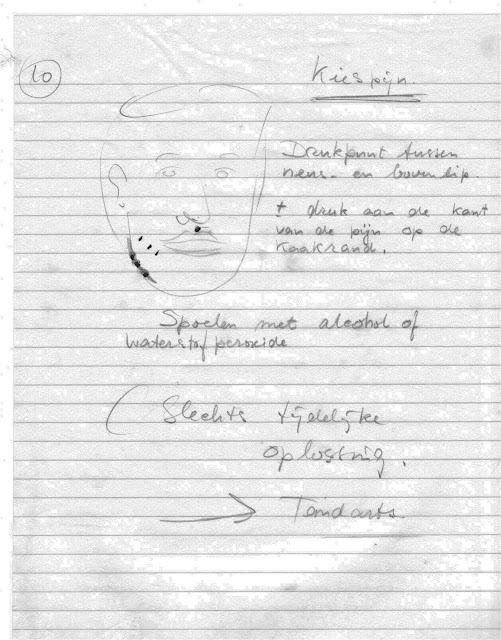 10
Kiespijn.
Drukpunt tussen
neus- en bovenlip.
+ druk aan de kant
van de pijn op de
Kaakrand.
Spoelen met alcohol of
waterstofperoxide
( Slechts tijdelijke
oplossing.
→ Tandarts.